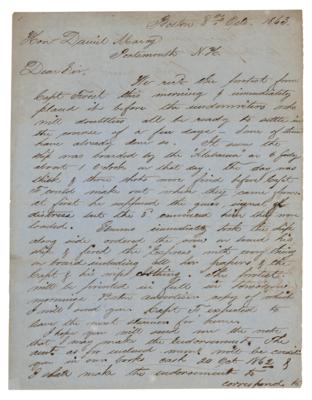 Boston 8th Oct. 1863.
Hon. Daniel Marcy
Portsmouth N.H.
Dear Sir.
We recd the protest from
Capt Frost this morning & immediately
placed it before the underwriters who
will doubtless all be ready to settle in
the course of a few days - Some of them
have already done so. It seems the
ship was boarded by the Alabama on 6 July
about 1 o'clock in that day. The day was
thick & three shots were fired before Capt
F could make out where they came from
at first he supposed the guns signals of
distress but the 3d convinced him they were
loaded. Semmes immediately took the ship
along side ordered the crew on board his
ship & fired the Express with every thing
on board including papers & the
Capt & his wife's clothing. The protest
will be printed in full in tomorrow
mornings Boston Advertiser copy of which
I will send you. Capt F expected to
leave the next steamer for home.
I hope you will send me the note
that I may make the endorsement. The
acct as for enclosed must be credit
in our books cash 20 Oct. 1863 &
I shall make the endorsement to
correspond to